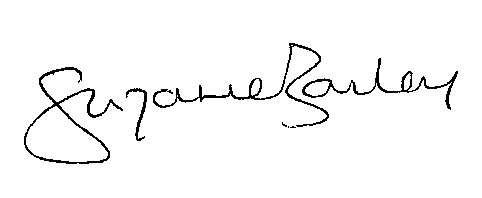 Suzanne Barley